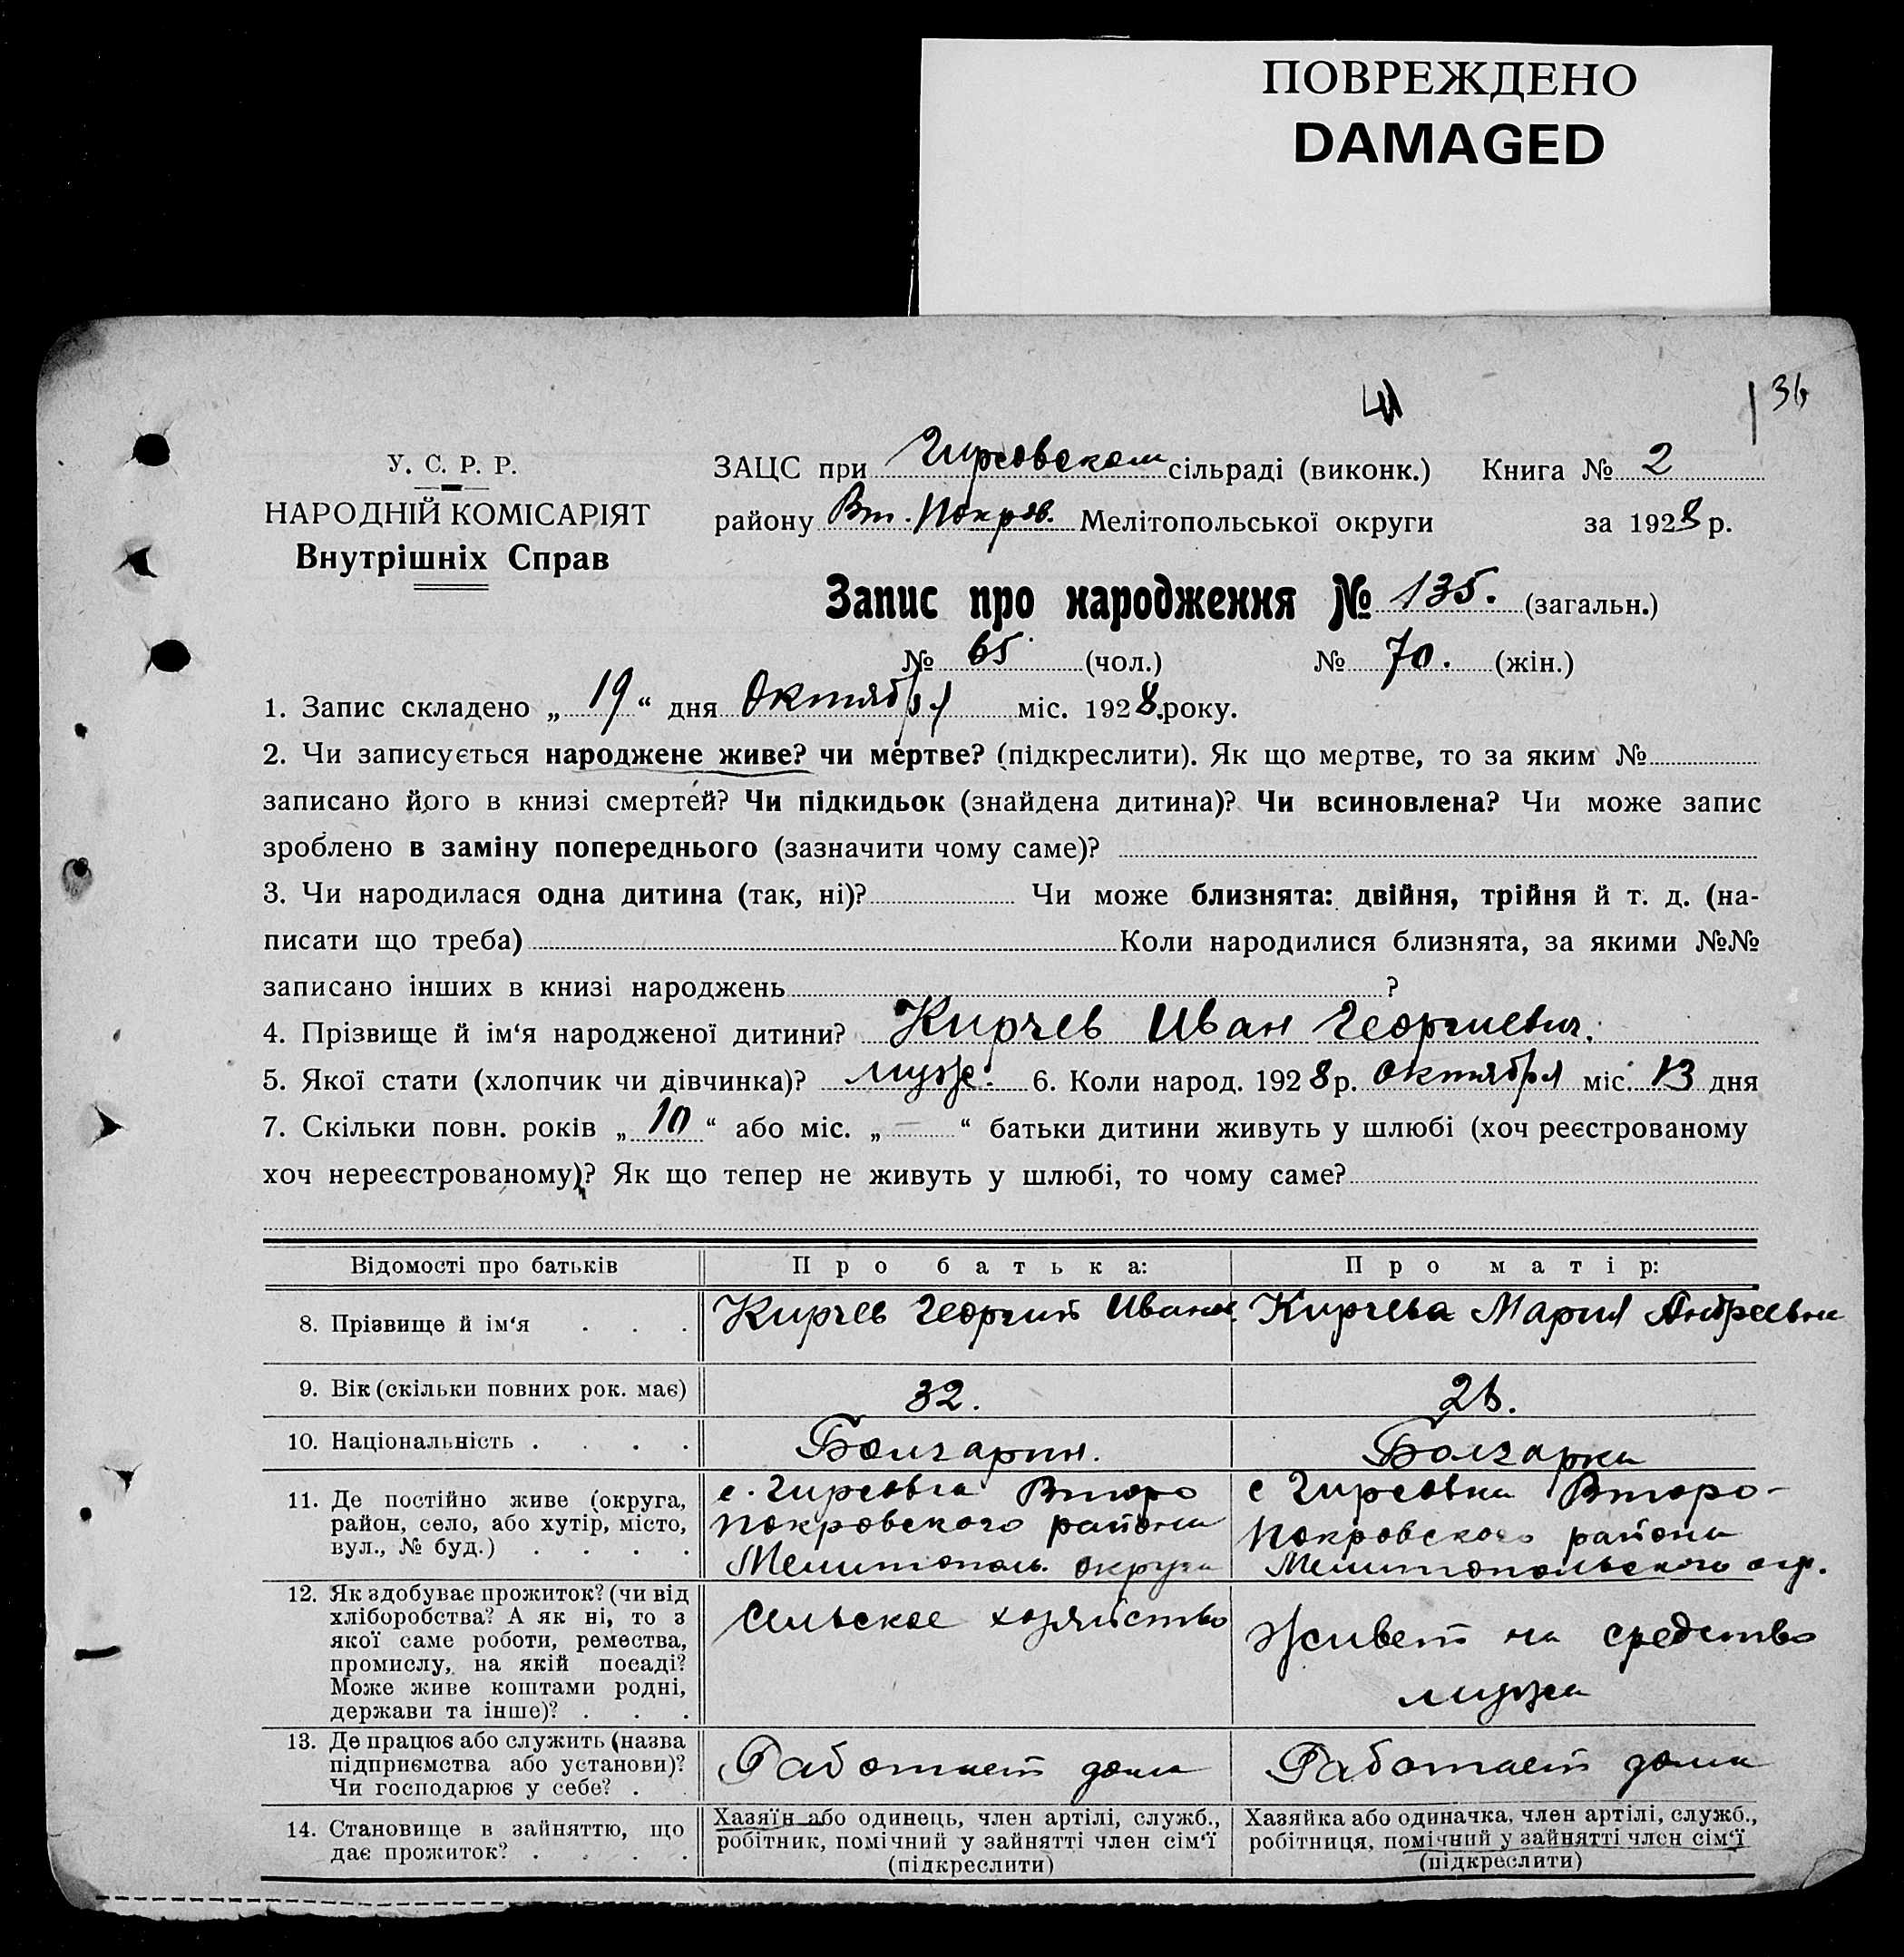 ПОВРЕЖДЕНО
DAMAGED
36
У. С. Р. Р.
НАРОДНІЙ КОМІСАРІЯТ
Внутрішніх Справ
ЗАЦС при Гирсовском сільраді (виконк.) Книга № 2
району Вт. Покров. Мелітопольської округи за 1928 р.
Запис про народження № 135. (загальн.)
№ 65 (чол.) № 70. (жін.)
1. Запис складено „ 19 “ дня Октября міс. 1928. року.
2. Чи записується народжене живе? чи мертве? (підкреслити). Як що мертве, то за яким №
записано його в книзі смертей? Чи підкидьок (знайдена дитина)? Чи всиновлена? Чи може запис
зроблено в заміну попереднього (зазначити чому саме)?
3. Чи народилася одна дитина (так, ні)? Чи може близнята: двійня, трійня й т. д. (на-
писати що треба) Коли народилися близнята, за якими №№
записано інших в книзі народжень ?
4. Прізвище й ім‘я народженої дитини? Кирчев Иван Георгиевич.
5. Якої стати (хлопчик чи дівчинка)? муж. 6. Коли народ. 1928 р. Октября міс. 13 дня
7. Скільки повн. років „ 10 “ або міс. „ — “ батьки дитини живуть у шлюбі (хоч реєстрованому
хоч нереєстрованому)? Як що тепер не живуть у шлюбі, то чому саме?
Відомості про батьків Про батька: Про матір:
8. Прізвище й ім‘я . . . Кирчев Георгий Иванов. Кирчева Мария Андреевна
9. Вік (скільки повних рок. має) 32. 28.
10. Національність . . . . Болгарин. Болгарка
11. Де постійно живе (округа,
район, село, або хутір, місто,
вул., № буд.) . . . .
с. Гирсовка Второ
Покровского района
Мелитополь. округа
с Гирсовка Второ-
Покровского района
Мелитопольского окр.
12. Як здобуває прожиток? (чи від
хліборобства? А як ні, то з
якої саме роботи, ремества,
промислу, на якій посаді?
Може живе коштами родні,
держави та інше)? . . .
Сельское хозяйство
Живет на средства
мужа
13. Де працює або служить (назва
підприємства або установи)?
Чи господарює у себе? .
Работает дома
Работает дома
14. Становище в зайняттю, що
дає прожиток? . . . .
Хазяїн або одинець, член артілі, служб.,
робітник, помічний у зайнятті член сім‘ї
(підкреслити)
Хазяйка або одиначка, член артілі, служб.,
робітниця, помічний у зайнятті член сім‘ї
(підкреслити)